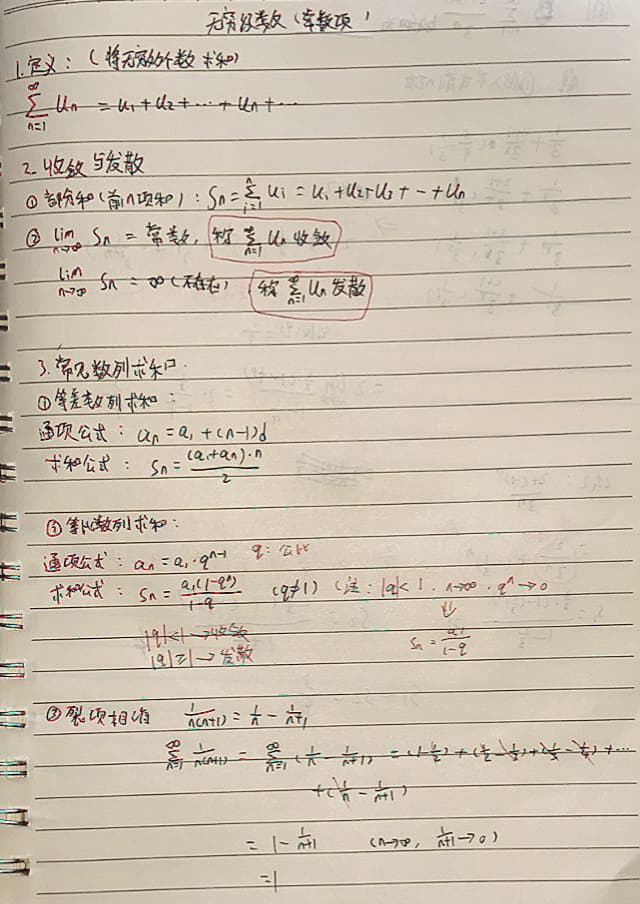 无穷级数（常数项）
1.定义：（将无穷个数求和）
∑_{n=1}^{∞} Un = U1 + U2 + ⋯ + Un + ⋯
2.收敛与发散
① 部分和（前n项和）：Sn = ∑_{i=1}^{n} Ui = U1 + U2 + U3 + ⋯ + Un
② lim_{n→∞} Sn = 常数, 称 ∑_{n=1}^{∞} Un 收敛
lim_{n→∞} Sn = ∞（不存在） 称 ∑_{n=1}^{∞} Un 发散
3.常见数列求和：
①等差数列求和：
通项公式：an = a1 + (n-1)d
求和公式：Sn = (a1+an)·n / 2
②等比数列求和：
通项公式：an = a1·q^{n-1} q：公比
求和公式：Sn = a1(1-q^n) / (1-q) (q≠1) (注：|q|<1. n→∞. q^n→0
⇓
|q|<1→收敛 Sn = a1 / (1-q)
|q|≥1→发散
③裂项相消 1/(n(n+1)) = 1/n - 1/(n+1)
∑_{n=1}^{∞} 1/(n(n+1)) = ∑_{n=1}^{∞} (1/n - 1/(n+1)) = (1-1/2) + (1/2-1/3) + (1/3-1/4) + ⋯
+ (1/n - 1/(n+1))
= 1 - 1/(n+1) (n→∞, 1/(n+1)→0)
= 1